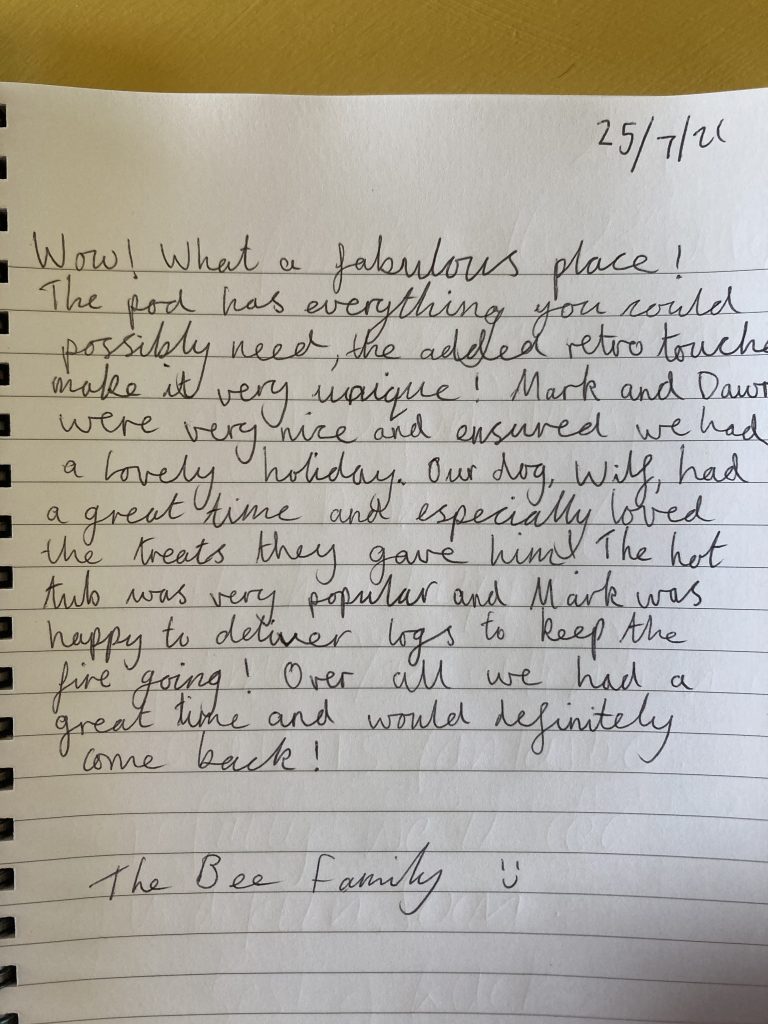 25/7/21
Wow! What a fabulous place!
The pod has everything you could
possibly need, the added retro touche
make it very unique! Mark and Dawn
were very nice and ensured we had
a lovely holiday. Our dog, Wilf, had
a great time and especially loved
the treats they gave him! The hot
tub was very popular and Mark was
happy to deliver logs to keep the
fire going! Over all we had a
great time and would definitely
come back!
The Bee Family :)